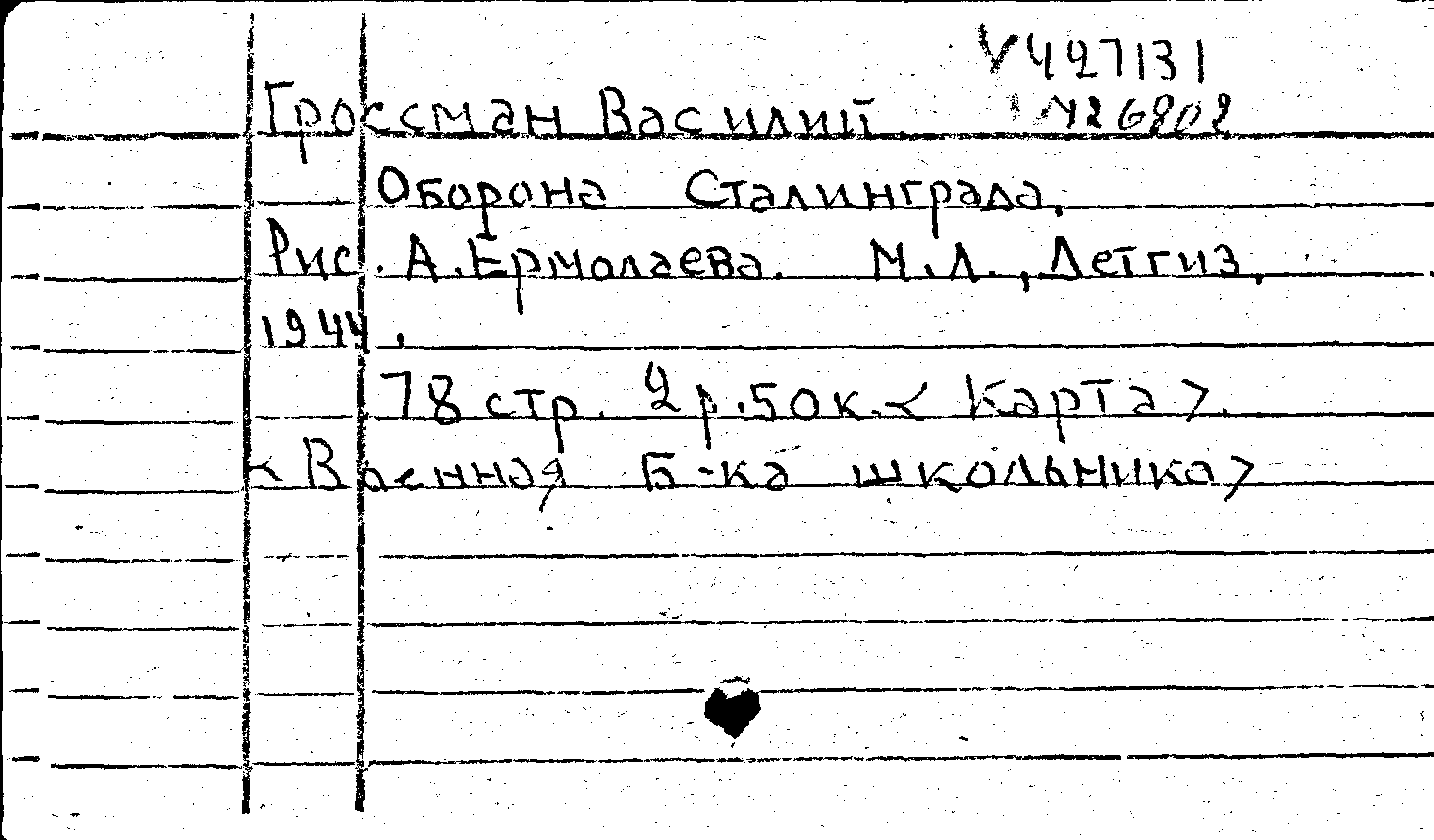 V 427131
Гроссман Василий
426802
Оборона Сталинграда.
Рис. А. Ермолаева. М.Л., Детгиз,
1944.
78 стр. 2 р. 50 к. < Карта >.
< Военная Б-ка школьника >